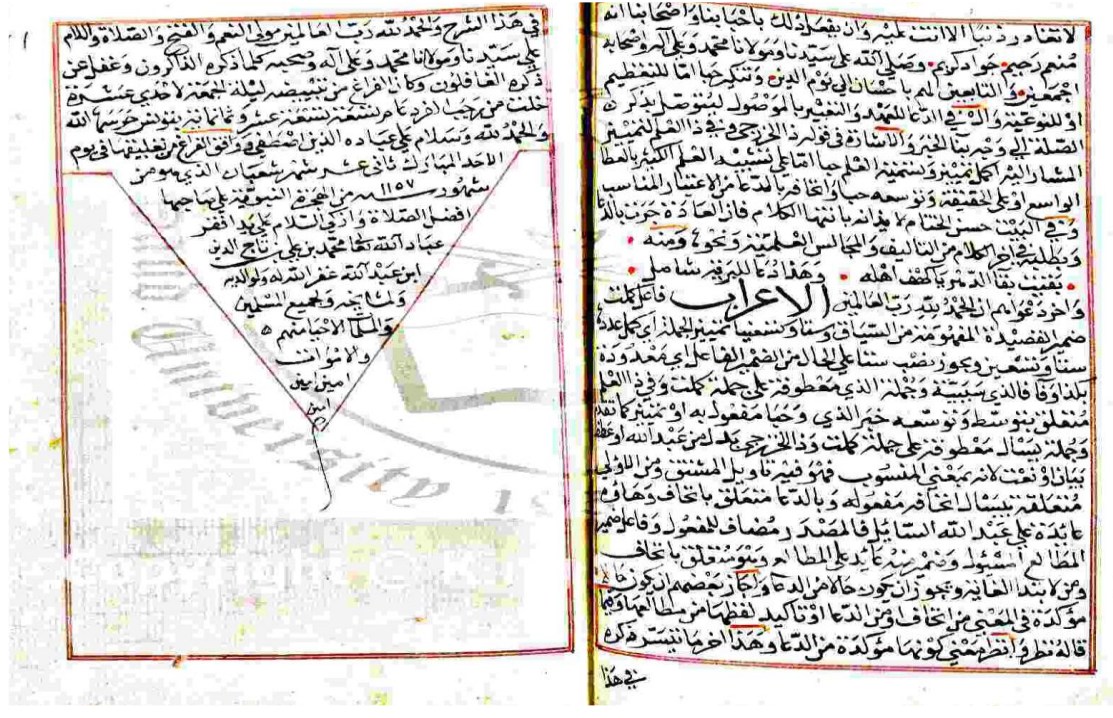 لا تغادر ذنبا الا انت عليه وان يفعل ذلك باحبابنا واصحابنا انه
منعم رحيم جواد كريم وصلى الله على سيدنا ومولانا محمد وعلى آله واصحابه
اجمعين والتابعين لهم باحسان الى يوم الدين وتنكير حبا اما للتعظيم
او للنوعية وال في الدعا للعهد والتعبير بالموصول ليتوصل بذكر
الصلة الى وجه بنا الخبر والاشارة في قوله ذا الخزرجي وفي ذا العلم للتمييز
المشار اليه اكمل تمييز وتسمية العلم حبا اما على تشبيه العلم الكثير بالعطا
الواسع او على الحقيقة وتوسعه حبا واتحافه بالدعا من الاعتبار المناسب
وفي البيت حسن الختام لايذانه بانتها الكلام فان العادة جرت بالدعا
وبطلبه في اخر الكلام من التاليف والمجالس العلمية ونحوها ومنه
بقيت بقا الدهر يا كهف اهله وهذا دعا للبرية شامل
واخر دعواهم ان الحمد لله رب العالمين الاعراب فاعل كملت
ضمير القصيدة المفهومة من السياق وستا وتسعينا تمييز الجملة اي كمل عدة
ستا وتسعين ويجوز نصب ستا على الحال من الضمير الفاعل اي معدودة
بكذا وفا فالذي سببية وجملة الذي معطوفة على جملة كملت وفي ذا العلم
متعلق بتوسط وتوسعه خبر الذي وحبا مفعول به او تمييز كما تقدم
وجملة يسال معطوفة على جملة كملت وذا الخزرجي بدل من عبد الله او عطف
بيان او نعت لانه بمعنى المنسوب فهو فيه تاويل المشتق ومن الاولى
متعلقة بيسال اتحافه مفعوله وبالدعا متعلق باتحاف وهاوه
عائدة على عبد الله السائل فالمصدر مضاف للمفعول وفاعله ضمير
المطالع المسئول وضمير منه عائد على المطالع وهو متعلق باتحاف
ومن لابتدا الغاية ويجوز ان يكون حالا من الدعا واجاز بعضهم ان يكون حالا
مؤكدة في المعنى من اتحاف ومن الدعا او تاكيد لفظها من مطالعها وفيما
قاله نظر وانظر معنى كونها مؤكدة من الدعا وهذا اخر ما تيسر ذكره
في هذا
في هذا الشرح والحمد لله رب العالمين مولى النعم والفتح والصلاة والسلام
على سيدنا ومولانا محمد وعلى آله وصحبه كلما ذكره الذاكرون وغفل عن
ذكره الغافلون وكان الفراغ من تبييضه ليلة الجمعة لاحدى عشرة
خلت من رجب الفرد عام تسعة عشر وثمانمائة بتونس حرسها الله
والحمد لله وسلام على عباده الذين اصطفى ووافق الفراغ من تعليقها في يوم
الاحد المبارك ثاني عشر شهر شعبان الذي هو من
شهور سنة ١١٥٧ من الهجرة النبوية على صاحبها
افضل الصلاة وازكى السلام على يد افقر
عباد الله تعالى محمد بن علي تاج الدين
ابن عبد الله غفر الله له ولوالديه
ولمشايخه ولجميع المسلمين
والمسلمات الاحيا منهم
والاموات
امين امين
امين